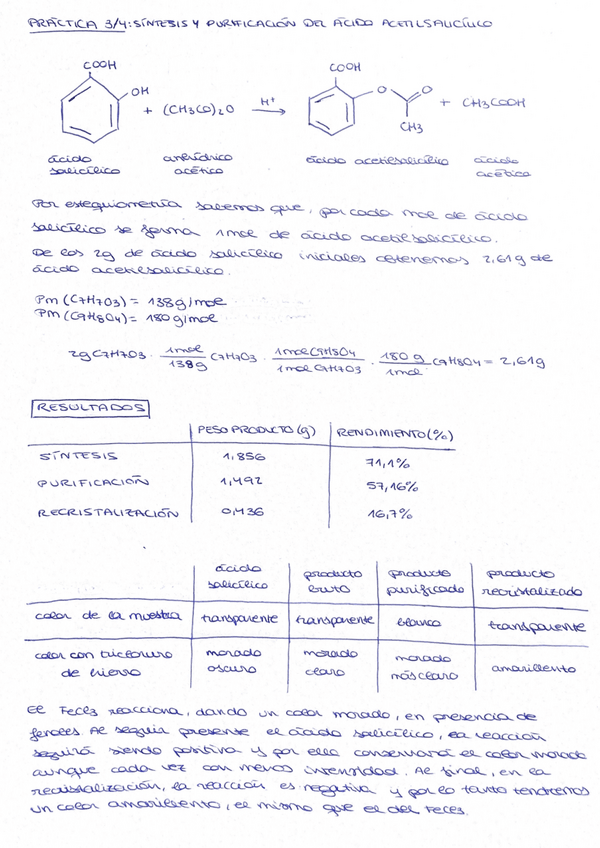 PRÁCTICA 3/4: SÍNTESIS Y PURIFICACIÓN DEL ÁCIDO ACETILSALICÍLICO
COOH
OH
+ (CH3CO)2O
H+
COOH
O
O
CH3
+ CH3COOH
ácido salicílico
anhídrico acético
ácido acetilsalicílico
ácido acético
Por estequiometría sabemos que, por cada mol de ácido
salicílico se forma 1 mol de ácido acetilsalicílico.
De los 2g de ácido salicílico iniciales obtenemos 2,61g de
ácido acetilsalicílico.
Pm (C7H7O3) = 138g/mol
Pm (C9H8O4) = 180g/mol
2g C7H7O3 · 1mol/138g C7H7O3 · 1mol C9H8O4/1mol C7H7O3 · 180 g/1mol C9H8O4 = 2,61g
RESULTADOS
PESO PRODUCTO (g) RENDIMIENTO (%)
SÍNTESIS 1,856 71,1%
PURIFICACIÓN 1,492 57,16%
RECRISTALIZACIÓN 0,436 16,7%
ácido salicílico producto bruto producto purificado producto recristalizado
color de la muestra transparente transparente blanco transparente
color con tricloruro de hierro morado oscuro morado claro morado más claro amarillento
El FeCl3 reacciona, dando un color morado, en presencia de
fenoles. Al seguir presente el ácido salicílico, la reacción
seguirá siendo positiva y por ello conservará el color morado
aunque cada vez con menos intensidad. Al final, en la
recristalización, la reacción es negativa y por lo tanto tendremos
un color amarillento, el mismo que el del FeCl3.